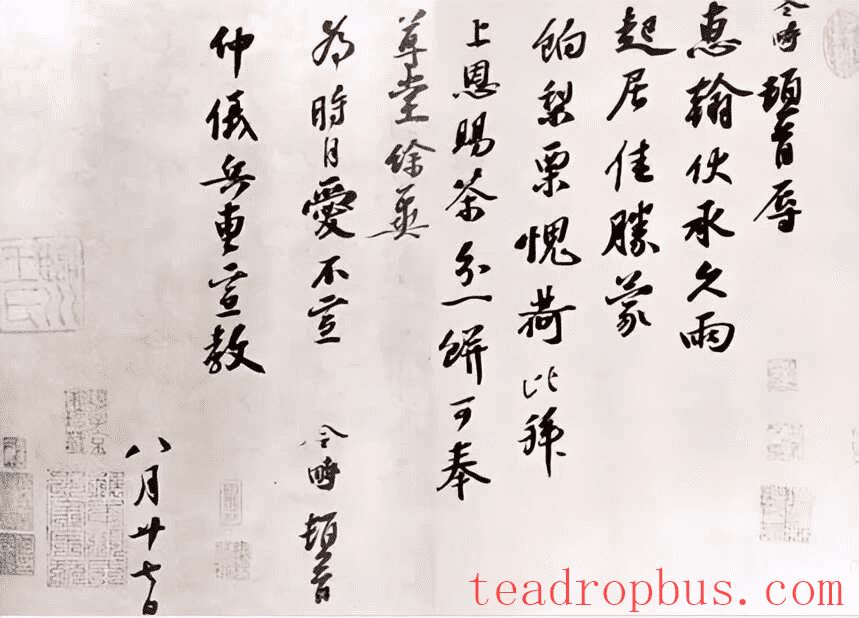 令畤頓首辱
惠翰伏承久雨
起居佳勝蒙
餉梨栗愧荷比拜
上恩賜茶分一餅可奉
尊堂餘冀
為時自愛不宣
令畤頓首
仲儀兵曹宣教
八月廿七日
teadropbus.com